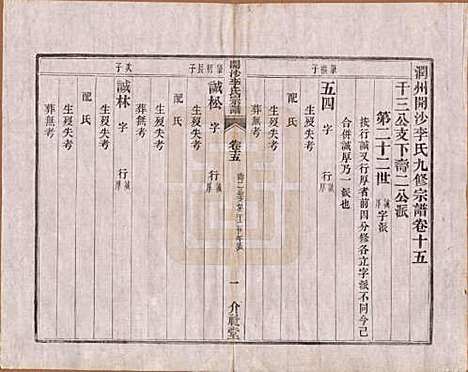 潤州開沙李氏九修宗譜卷十五
千三公支下壽二公派
第二十二世 誠厚 字派
按行誠又行厚者前因分修各立字派不同今已
合併誠厚乃一派也
五四 字 行誠厚
生歿失考
配氏
葬無考
開沙李氏宗譜
卷十五
一 介祉堂
誠松 字 行厚
生歿失考
配氏
生歿失考
葬無考
次子
誠林 字 行厚
生歿失考
配氏
生歿失考
葬無考